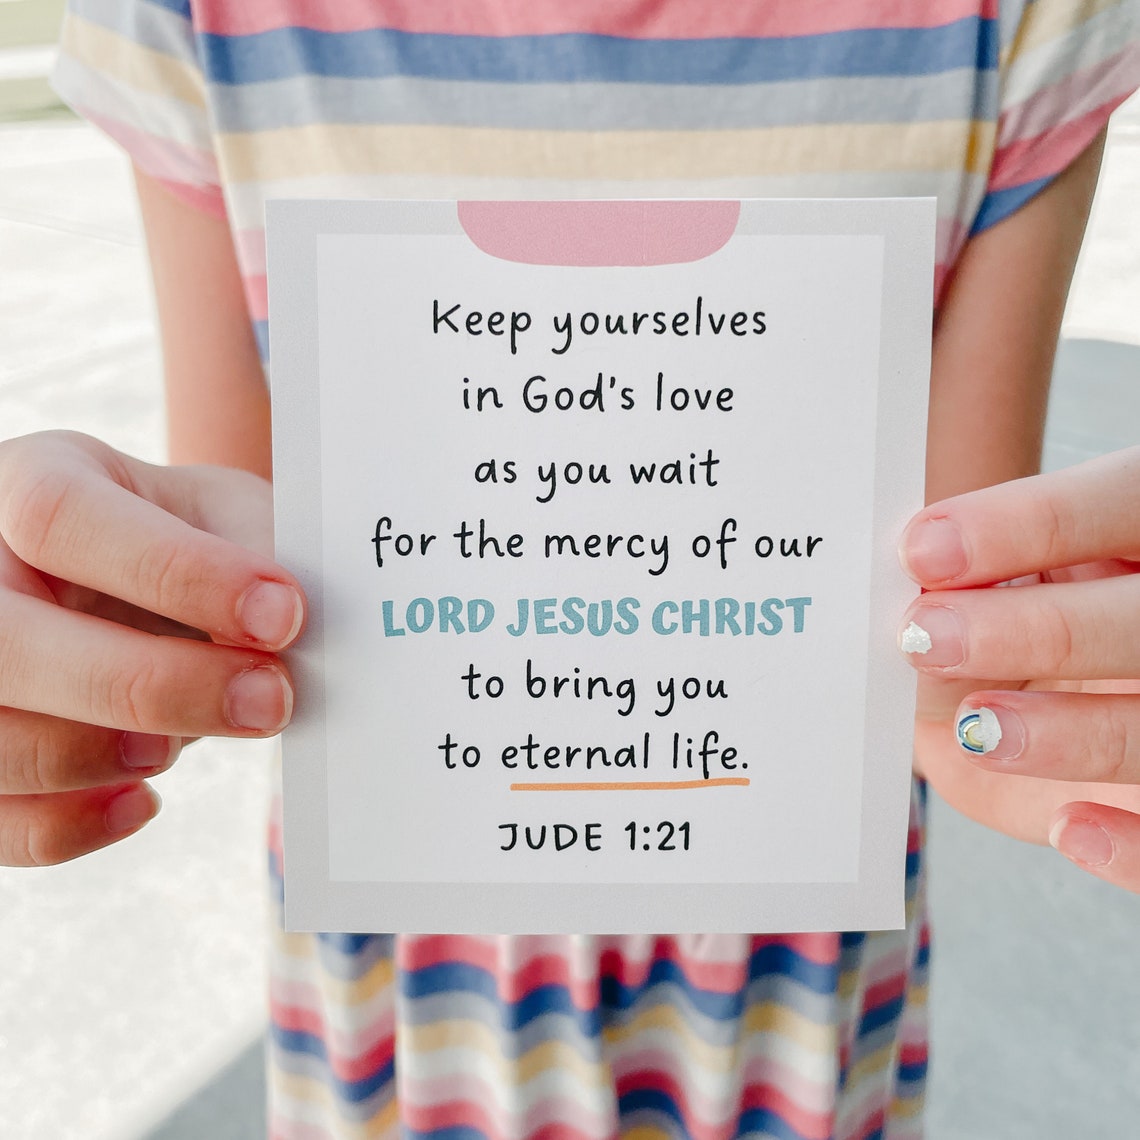 Keep yourselves
in God's love
as you wait
for the mercy of our
LORD JESUS CHRIST
to bring you
to eternal life.
JUDE 1:21